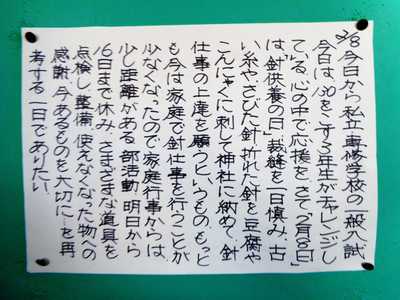 2/8 今日から私立専修学校の一般入試
今日は、30をこす3年生がチャレンジし
ている。心の中で応援を。さて2月8日
は「針供養の日」裁縫を一日慎み、古
い糸やさびた針・折れた針を豆腐や
こんにゃくに刺して神社に納めて、針
仕事の上達を願うというもの。もっと
も今は家庭で針仕事を行うことが
少なくなったので家庭行事からは、
少し距離がある。部活動、明日から
16日まで休み。さまざまな道具を
点検し、整備、使えなくなった物への
感謝、今あるものを大切に…を再
考する一日でありたい。